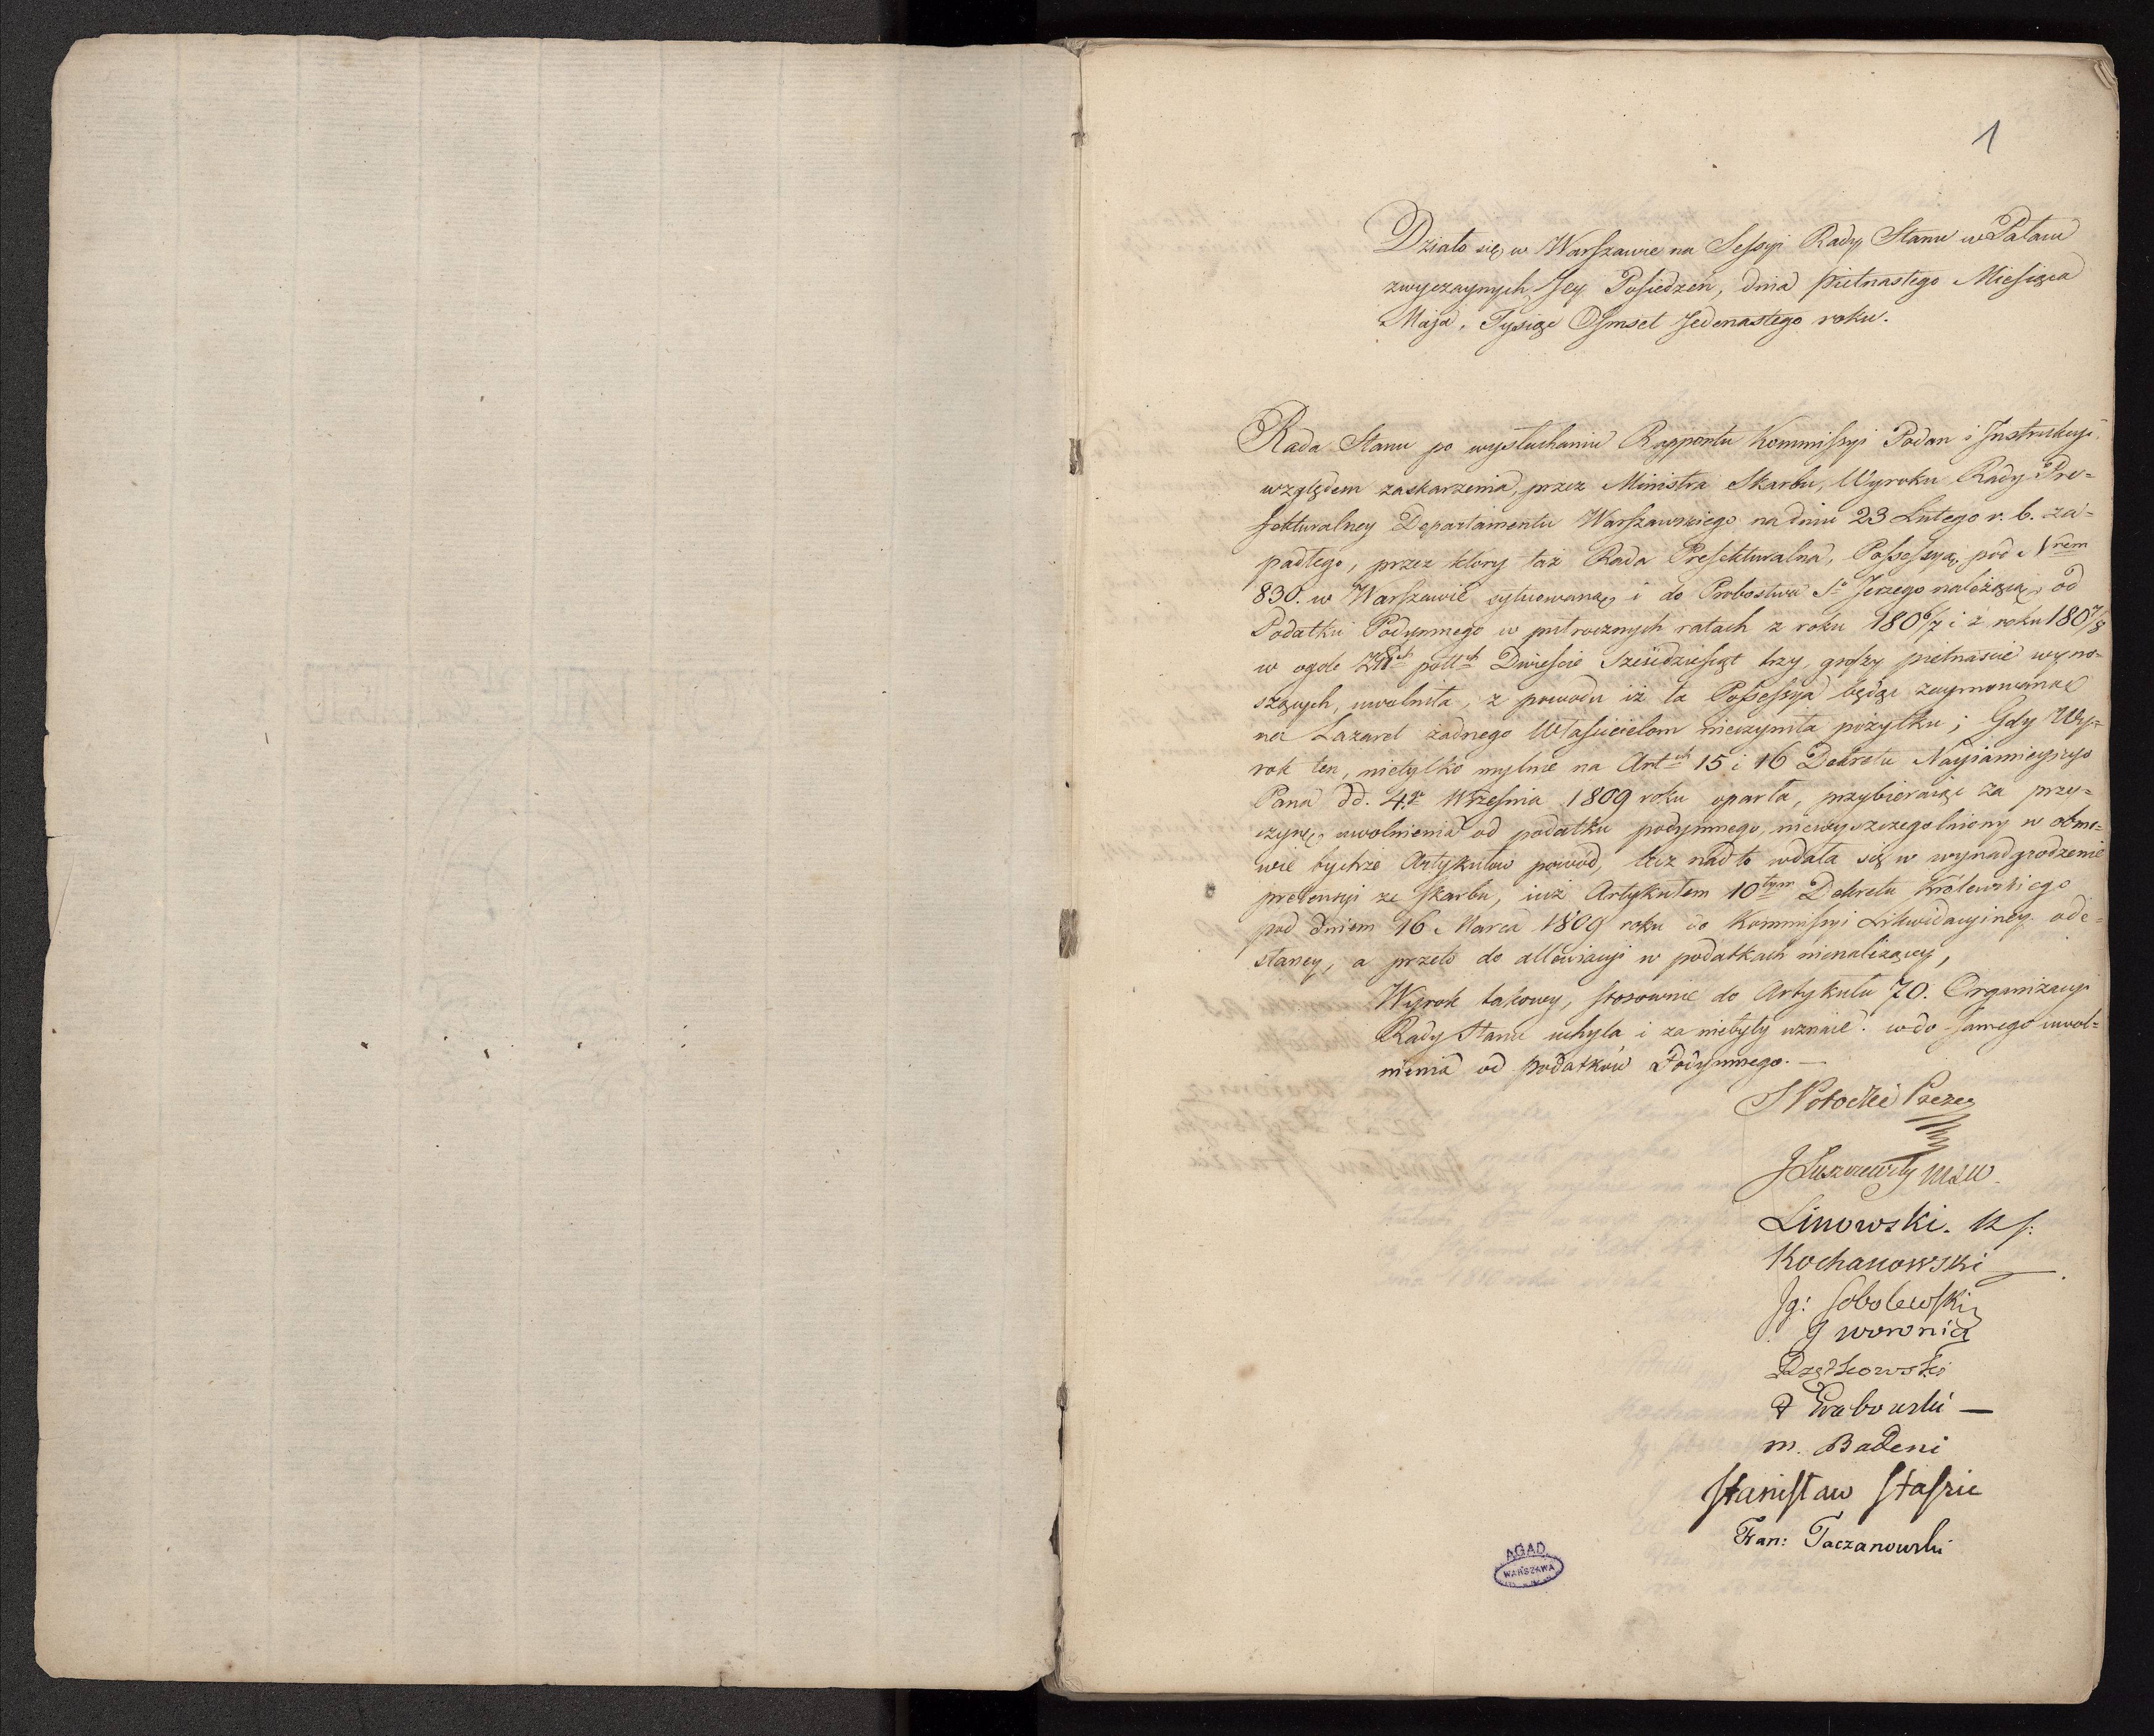 1
Działo się w Warszawie na Sessyi Rady Stanu w Pałacu
zwyczaynych Jey Posiedzeń, dnia pietnastego Miesiąca
Maja, Tysiąc Osmset Jedenastego roku.
Rada Stanu po wysłuchaniu Rapportu Kommissyi Podan i Instrukcyi
względem zaskarzenia, przez Ministra Skarbu, Wyroku Rady Pre=
fekturalney Departamentu Warszawskiego na dniu 23 Lutego r. b. za=
padłego, przez ktory taż Rada Prefekturalna, Possessyą pod Nrem
830. w Warszawie sytuowaną i do Probostwa So Jerzego należącą, od
Podatku Podymnego w putrocznych ratach z roku 1806/7 i z roku 1807/8
w ogole Złch polłch Dwieście Sześćdziesiąt trzy, groszy pietnascie wyno=
szących, uwolniła, z powodu iż ta Possessya będąc zaymowana
na Lazaret żadnego Właścicielom nieczyniła pożytku; Gdy Wy=
rok ten, nietylko mylnie na Artch 15 i 16 Dekretu Nayiasnieyszego
Pana dd. 4go Września 1809 roku oparła, przybieraiąc za przy=
czynę uwolnienia od podatku podymnego, niewyszczegolniony w obmo=
wie tychże Artykułow powód, lecz nadto wdała się w wynadgrodzenie
pretensyi ze skarbu, iuż Artykułem 10tym Dekretu Królewskiego
pod dniem 16 Marca 1809 roku do Kommissyi Likwidacyiney ode=
słaney, a przeto do allewiacyi w podatkach nienależącey,
Wyrok takowy, stosownie do Artykułu 70. Organizacyi
Rady Stanu uchyla i za niebyły uznaie. w do samego uwol=
nienia od podatków Podymnego. —
S Potocki Prezes
J Łuszczewsky MSW.
Linowski. R S:
Kochanowski
Ig: Sobolewski
J Woronicz
Rzętkowski
F Grabowski —
M. Badeni
Stanisław Staszic
Fran: Taczanowski
AGAD
WARSZAWA